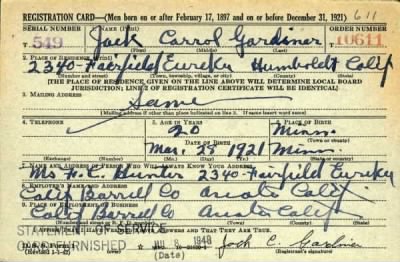 REGISTRATION CARD—(Men born on or after February 17, 1897 and on or before December 31, 1921) 611
SERIAL NUMBER 1. NAME (Print) ORDER NUMBER
T 549 Jack Carrol Gardiner 10611
(First) (Middle) (Last)
2. PLACE OF RESIDENCE (Print)
2340-Fairfield Eureka Humboldt Calif
(Number and street) (Town, township, village, or city) (County) (State)
[THE PLACE OF RESIDENCE GIVEN ON THE LINE ABOVE WILL DETERMINE LOCAL BOARD
JURISDICTION; LINE 2 OF REGISTRATION CERTIFICATE WILL BE IDENTICAL]
3. MAILING ADDRESS
Same
[Mailing address if other than place indicated on line 2. If same insert word same]
4. TELEPHONE 5. AGE IN YEARS 6. PLACE OF BIRTH
20 Minn.
DATE OF BIRTH (Town or county)
Mar. 25 1921 Minn
(Exchange) (Number) (Mo.) (Day) (Yr.) (State or country)
7. NAME AND ADDRESS OF PERSON WHO WILL ALWAYS KNOW YOUR ADDRESS
Ms. Hunter 2340-Fairfield Eureka
8. EMPLOYER'S NAME AND ADDRESS
Calif Barrell Co Arcata Calif
9. PLACE OF EMPLOYMENT OR BUSINESS
Calif Barrell Co Arcata Calif
(Number and street or R. F. D. number) (Town) (County) (State)
THAT THEY ARE TRUE.
STATEMENT OF SERVICE
FURNISHED
D. S. S. Form 1
(Revised 1-1-42)
(Date)
Jack C. Gardiner